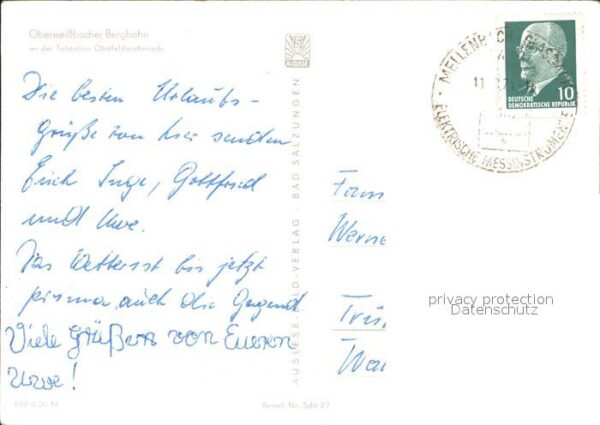 Oberweißbacher Bergbahn
an der Talstation Obstfelderschmiede
Die besten Urlaubs-
grüße von hier senden
Euch Inge, Gottfried
und Uwe.
Das Wetter ist bis jetzt
prima, auch die Gegend
Viele Grüßen von Euren
Uwe!
AUSLESE-BILD-VERLAG · BAD SALZUNGEN
Fam
Werne
MELLENBACH-GLASBACH
ELEKTRISCHE MESSINSTRUMENTE
10
DEUTSCHE
DEMOKRATISCHE REPUBLIK
privacy protection
Datenschutz
Bestell-Nr.